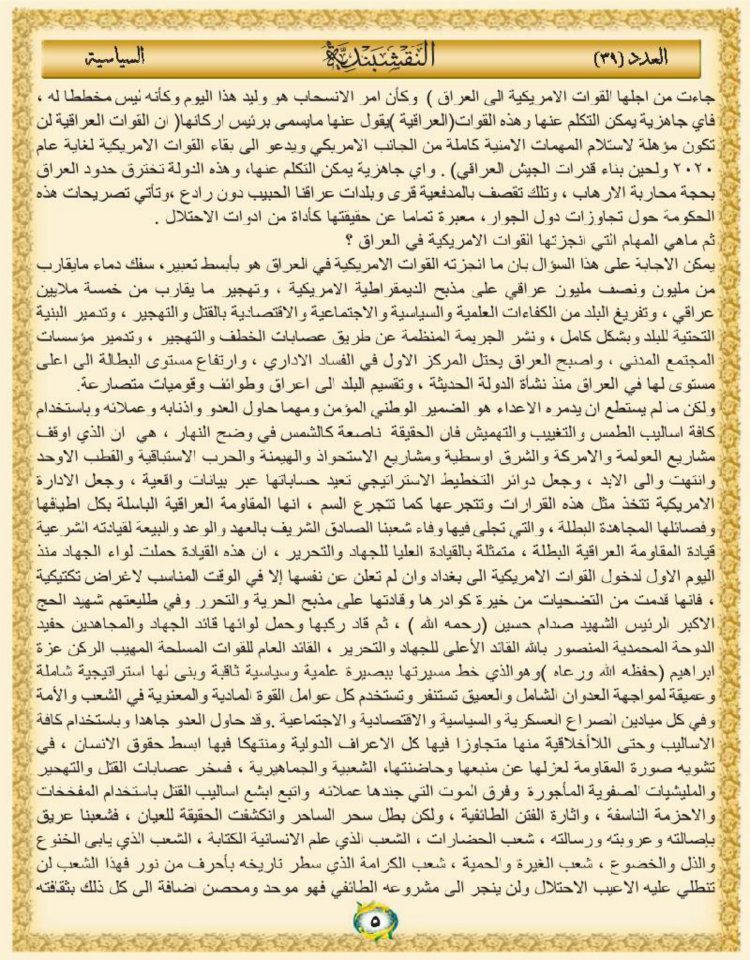 العدد (٣٩)
النقشبندية
السياسية
جاءت من اجلها القوات الامريكية الى العراق ) وكأن امر الانسحاب هو وليد هذا اليوم وكأنه ليس مخططا له ،
فاي جاهزية يمكن التكلم عنها وهذه القوات(العراقية )يقول عنها مايسمى برئيس اركانها( ان القوات العراقية لن
تكون مؤهلة لاستلام المهمات الامنية كاملة من الجانب الامريكي ويدعو الى بقاء القوات الامريكية لغاية عام
٢٠٢٠ ولحين بناء قدرات الجيش العراقي) . واي جاهزية يمكن التكلم عنها، وهذه الدولة تخترق حدود العراق
بحجة محاربة الارهاب ، وتلك تقصف بالمدفعية قرى وبلدات عراقنا الحبيب دون رادع ،وتأتي تصريحات هذه
الحكومة حول تجاوزات دول الجوار، معبرة تماما عن حقيقتها كأداة من ادوات الاحتلال .
ثم ماهي المهام التي انجزتها القوات الامريكية في العراق ؟
يمكن الاجابة على هذا السؤال بان ما انجزته القوات الامريكية في العراق هو بأبسط تعبير، سفك دماء مايقارب
من مليون ونصف مليون عراقي على مذبح الديمقراطية الامريكية ، وتهجير ما يقارب من خمسة ملايين
عراقي ، وتفريغ البلد من الكفاءات العلمية والسياسية والاجتماعية والاقتصادية بالقتل والتهجير ، وتدمير البنية
التحتية للبلد وبشكل كامل ، ونشر الجريمة المنظمة عن طريق عصابات الخطف والتهجير ، وتدمير مؤسسات
المجتمع المدني ، واصبح العراق يحتل المركز الاول في الفساد الاداري ، وارتفاع مستوى البطالة الى اعلى
مستوى لها في العراق منذ نشأة الدولة الحديثة ، وتقسيم البلد الى اعراق وطوائف وقوميات متصارعة.
ولكن ما لم يستطع ان يدمره الاعداء هو الضمير الوطني المؤمن ومهما حاول العدو واذنابه وعملائه وباستخدام
كافة اساليب الطمس والتغييب والتهميش فان الحقيقة ناصعة كالشمس في وضح النهار ، هي ان الذي اوقف
مشاريع العولمة والامركة والشرق اوسطية ومشاريع الاستحواذ والهيمنة والحرب الاستباقية والقطب الاوحد
وانتهت والى الابد ، وجعل دوائر التخطيط الاستراتيجي تعيد حساباتها عبر بيانات واقعية ، وجعل الادارة
الامريكية تتخذ مثل هذه القرارات وتتجرعها كما تتجرع السم ، انها المقاومة العراقية الباسلة بكل اطيافها
وفصائلها المجاهدة البطلة ، والتي تجلى فيها وفاء شعبنا الصادق الشريف بالعهد والوعد والبيعة لقيادته الشرعية
قيادة المقاومة العراقية البطلة ، متمثلة بالقيادة العليا للجهاد والتحرير ، ان هذه القيادة حملت لواء الجهاد منذ
اليوم الاول لدخول القوات الامريكية الى بغداد وان لم تعلن عن نفسها إلا في الوقت المناسب لاغراض تكتيكية
، فانها قدمت من التضحيات من خيرة كوادرها وقادتها على مذبح الحرية والتحرر وفي طليعتهم شهيد الحج
الاكبر الرئيس الشهيد صدام حسين (رحمه الله ) ، ثم قاد ركبها وحمل لوائها قائد الجهاد والمجاهدين حفيد
الدوحة المحمدية المنصور بالله القائد الأعلى للجهاد والتحرير ، القائد العام للقوات المسلحة المهيب الركن عزة
ابراهيم (حفظه الله ورعاه )وهوالذي خط مسيرتها ببصيرة علمية وسياسية ثاقبة وبنى لها استراتيجية شاملة
وعميقة لمواجهة العدوان الشامل والعميق تستنفر وتستخدم كل عوامل القوة المادية والمعنوية في الشعب والأمة
وفي كل ميادين الصراع العسكرية والسياسية والاقتصادية والاجتماعية .وقد حاول العدو جاهدا وباستخدام كافة
الاساليب وحتى اللاأخلاقية منها متجاوزا فيها كل الاعراف الدولية ومنتهكا فيها ابسط حقوق الانسان ، في
تشويه صورة المقاومة لعزلها عن منبعها وحاضنتها، الشعبية والجماهيرية ، فسخر عصابات القتل والتهجير
والمليشيات الصفوية المأجورة وفرق الموت التي جندها عملائه واتبع ابشع اساليب القتل باستخدام المفخخات
والاحزمة الناسفة ، واثارة الفتن الطائفية ، ولكن بطل سحر الساحر وانكشفت الحقيقة للعيان ، فشعبنا عريق
بإصالته وعروبته ورسالته ، شعب الحضارات ، الشعب الذي علم الانسانية الكتابة ، الشعب الذي يابى الخنوع
والذل والخضوع ، شعب الغيرة والحمية ، شعب الكرامة الذي سطر تاريخه بأحرف من نور فهذا الشعب لن
تنطلي عليه الاعيب الاحتلال ولن ينجر الى مشروعه الطائفي فهو موحد ومحصن اضافة الى كل ذلك بثقافته
٥